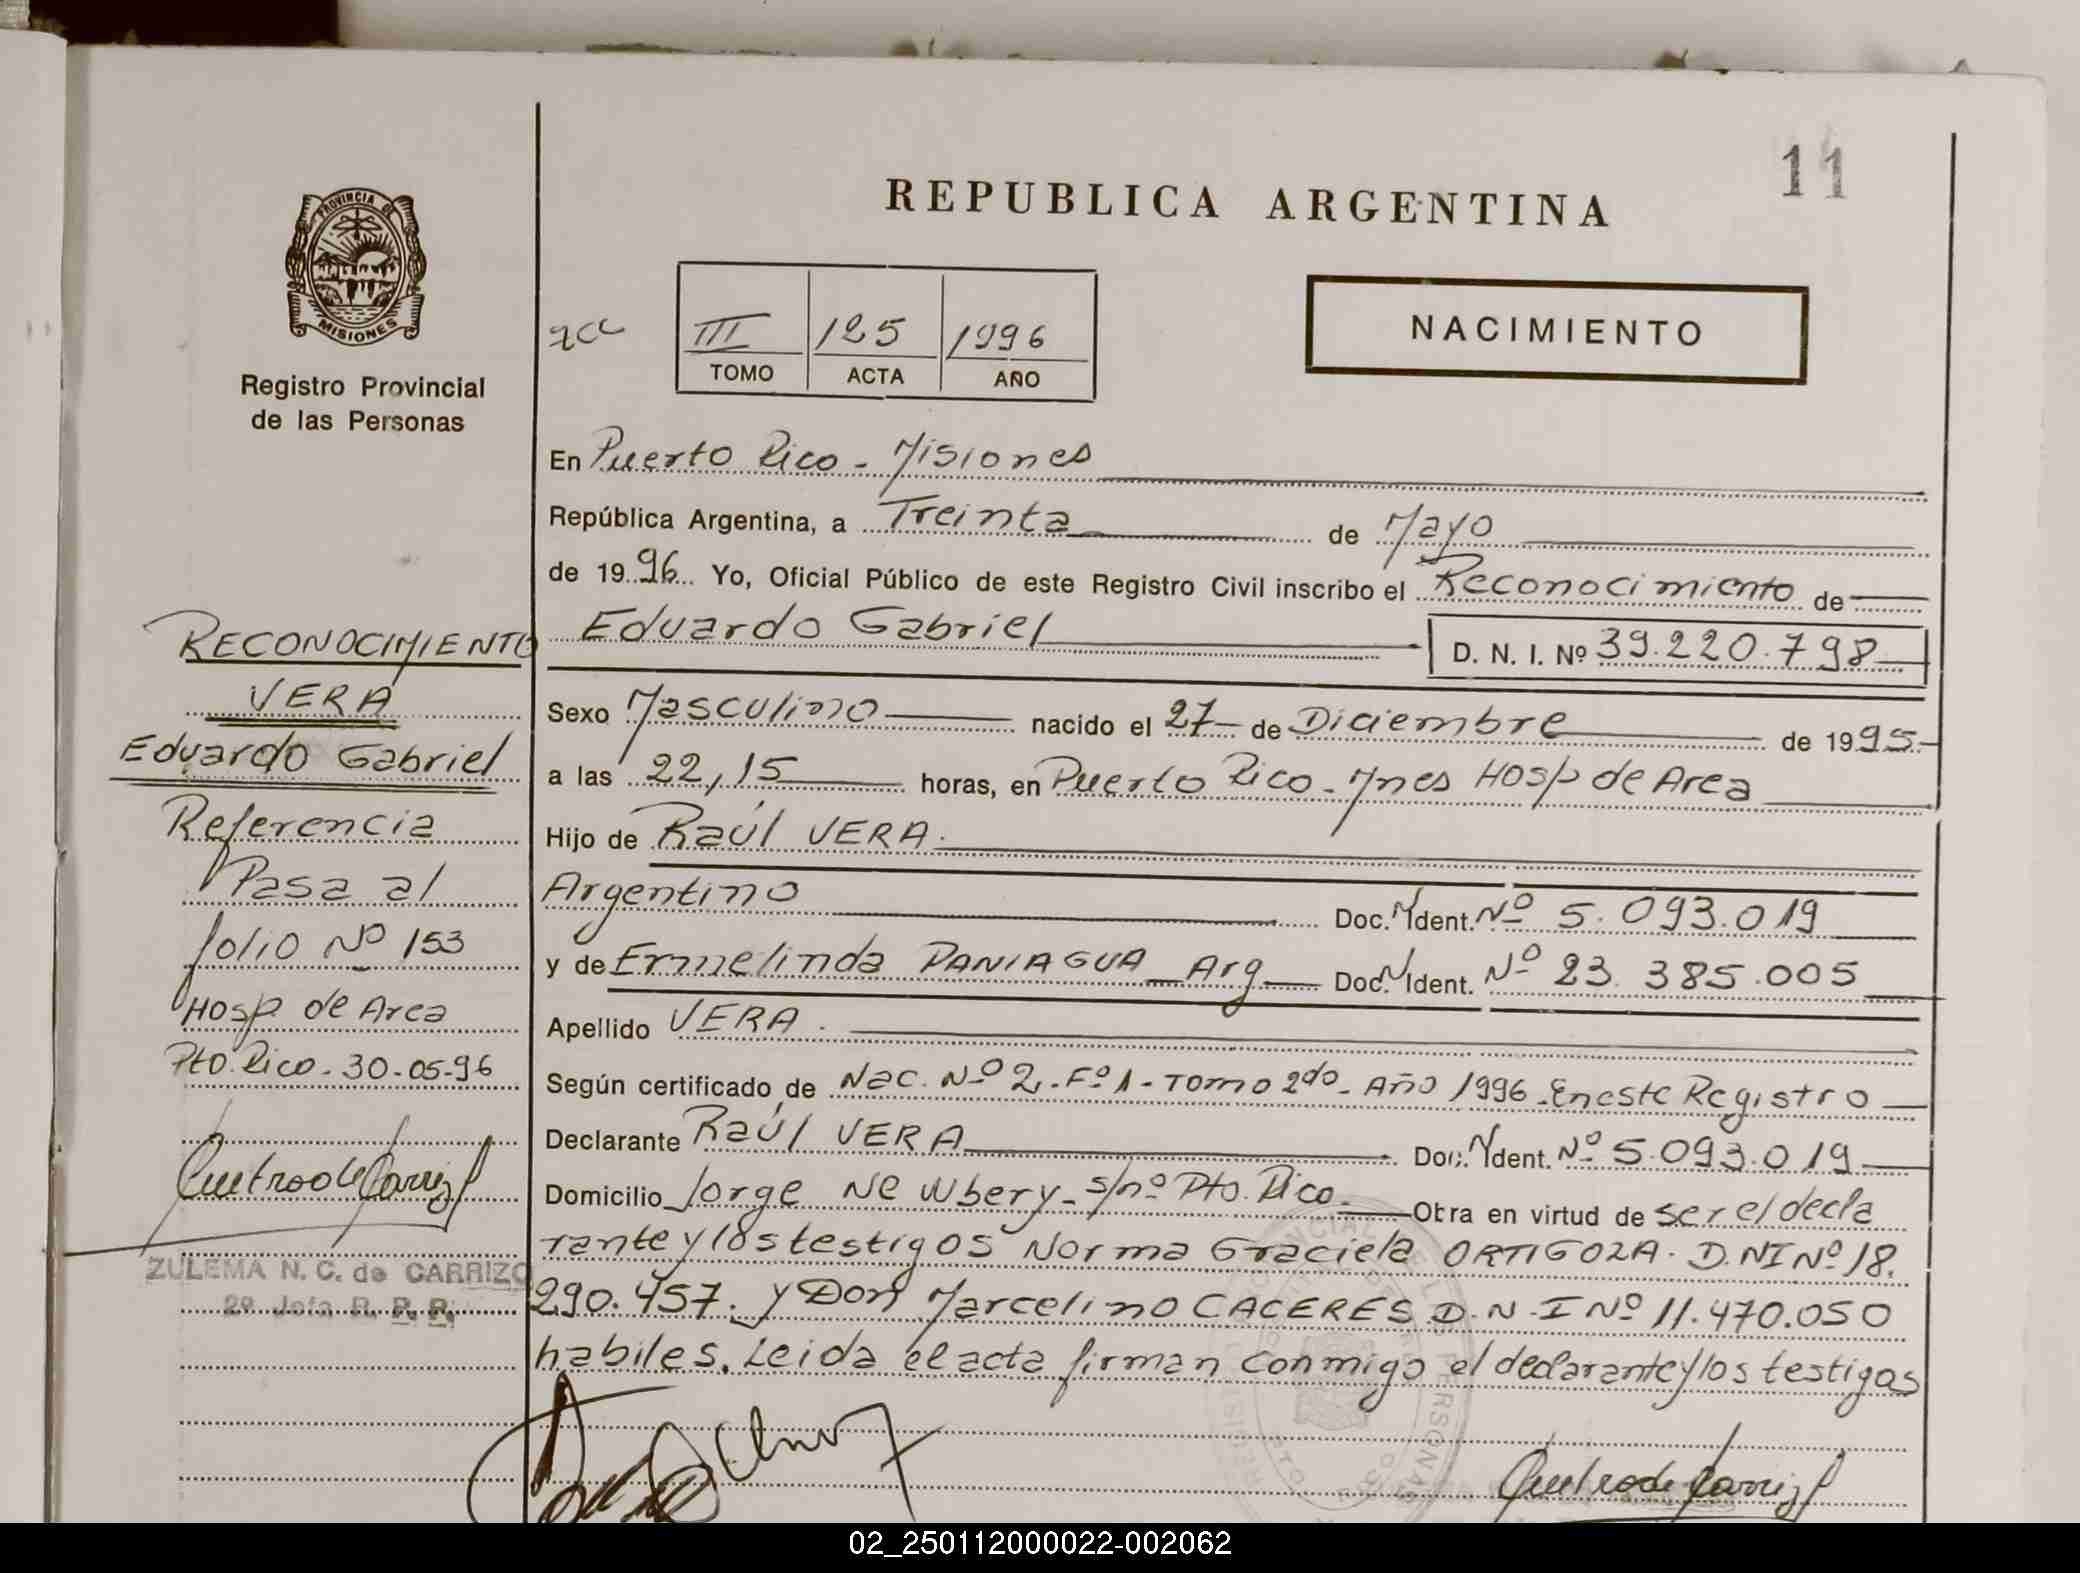 11
REPUBLICA ARGENTINA
PROVINCIA DE
MISIONES
Registro Provincial
de las Personas
III 125 1996
TOMO ACTA AÑO
NACIMIENTO
En Puerto Rico - Misiones
República Argentina, a Treinta de Mayo
de 1996 Yo, Oficial Público de este Registro Civil inscribo el Reconocimiento de
Eduardo Gabriel D. N. I. Nº 39.220.798
Sexo Masculino nacido el 27 de Diciembre de 1995
a las 22,15 horas, en Puerto Rico - Mnes Hosp de Area
Hijo de Raúl VERA.
Argentino Doc. M Ident. Nº 5.093.019
y de Ermelinda PANIAGUA Arg Doc. N Ident. Nº 23.385.005
Apellido VERA.
Según certificado de Nac. Nº 2. Fº 1 - Tomo 2do - Año 1996. En este Registro
Declarante Raúl VERA Doc. M Ident. Nº 5.093.019
Domicilio Jorge Newbery - s/nº Pto. Rico Obra en virtud de ser el decla
rante y los testigos Norma Graciela ORTIGOZA. D.NI Nº 18.
290.457. y Don Marcelino CACERES D.N.I Nº 11.470.050
habiles. Leida el acta firman conmigo el declarante y los testigos
RECONOCIMIENTO
VERA
Eduardo Gabriel
Referencia
Pasa al
folio Nº 153
Hosp. de Area
Pto. Rico - 30-05-96
ZULEMA N. C. de CARRIZO
2º Jefa R. P. P.
02_250112000022-002062